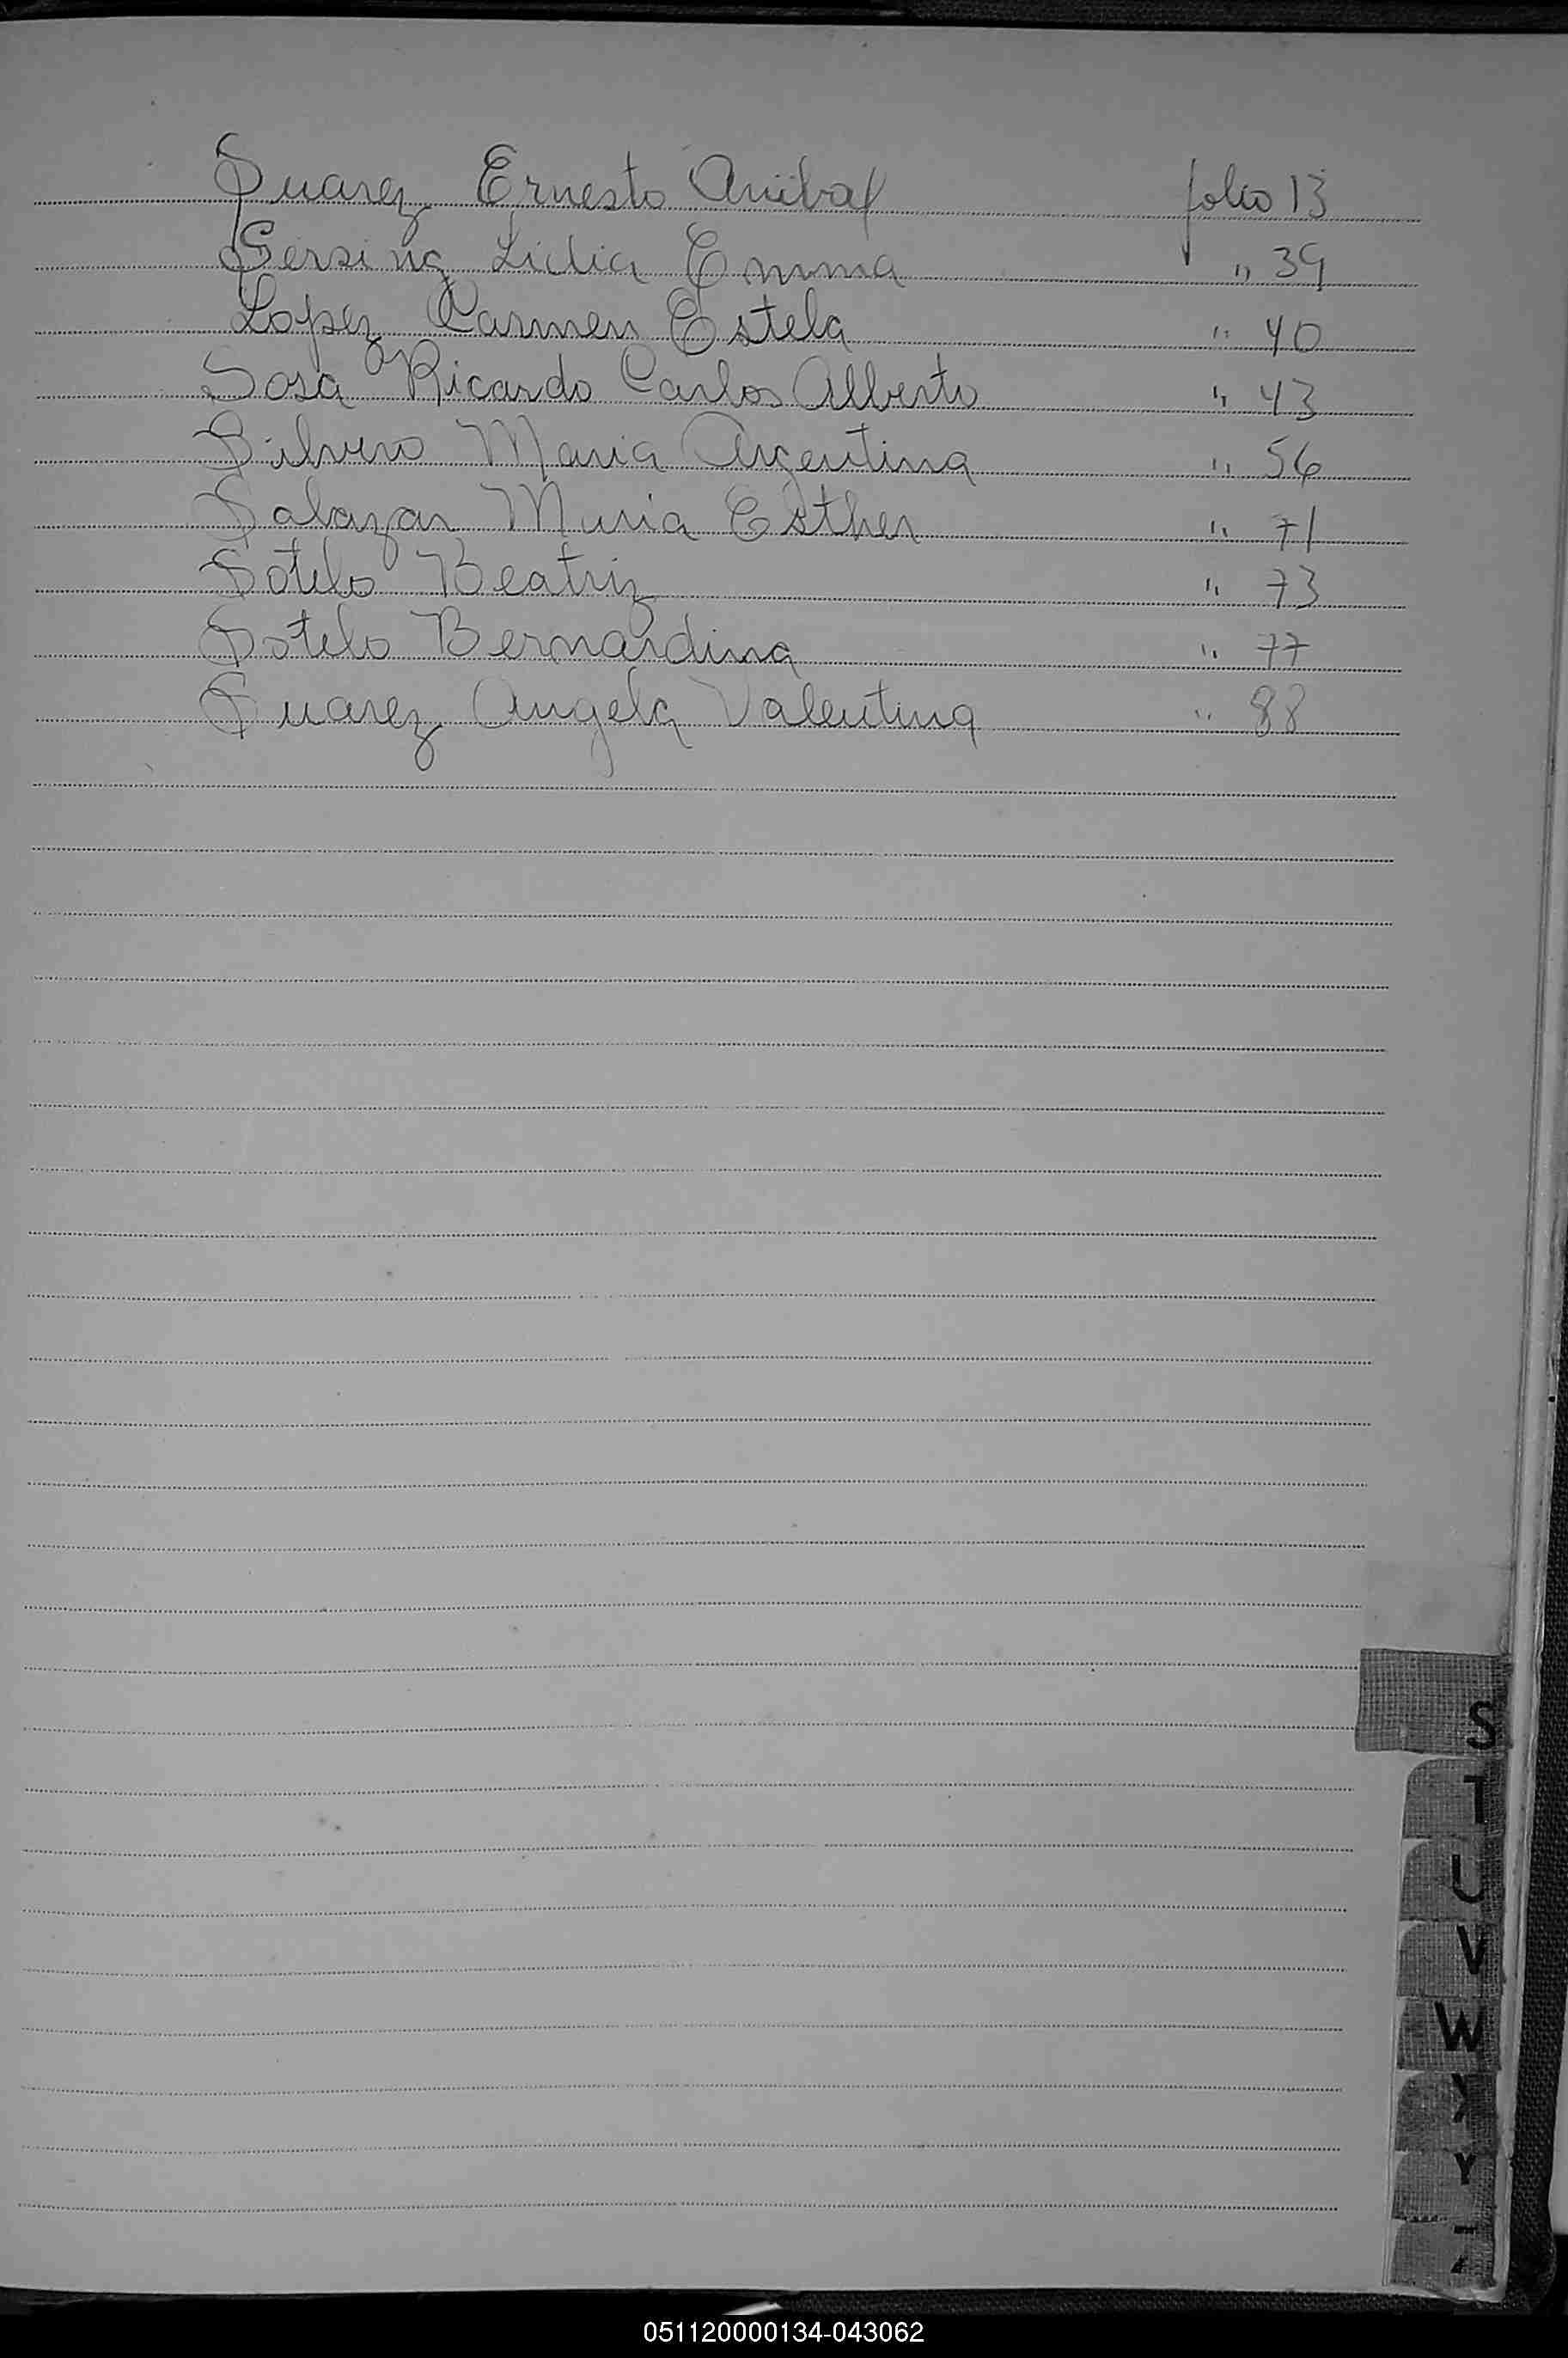 Suarez Ernesto Anibal folio 13
Gersing Lidia Emma " 39
Lopez Carmen Estela " 40
Sosa Ricardo Carlos Alberto " 43
Silvero Maria Argentina " 56
Salazar Maria Esther " 71
Sotelo Beatriz " 73
Sotelo Bernardina " 77
Suarez Angela Valentina " 88
S
T
U
V
W
X
Y
Z
051120000134-043062